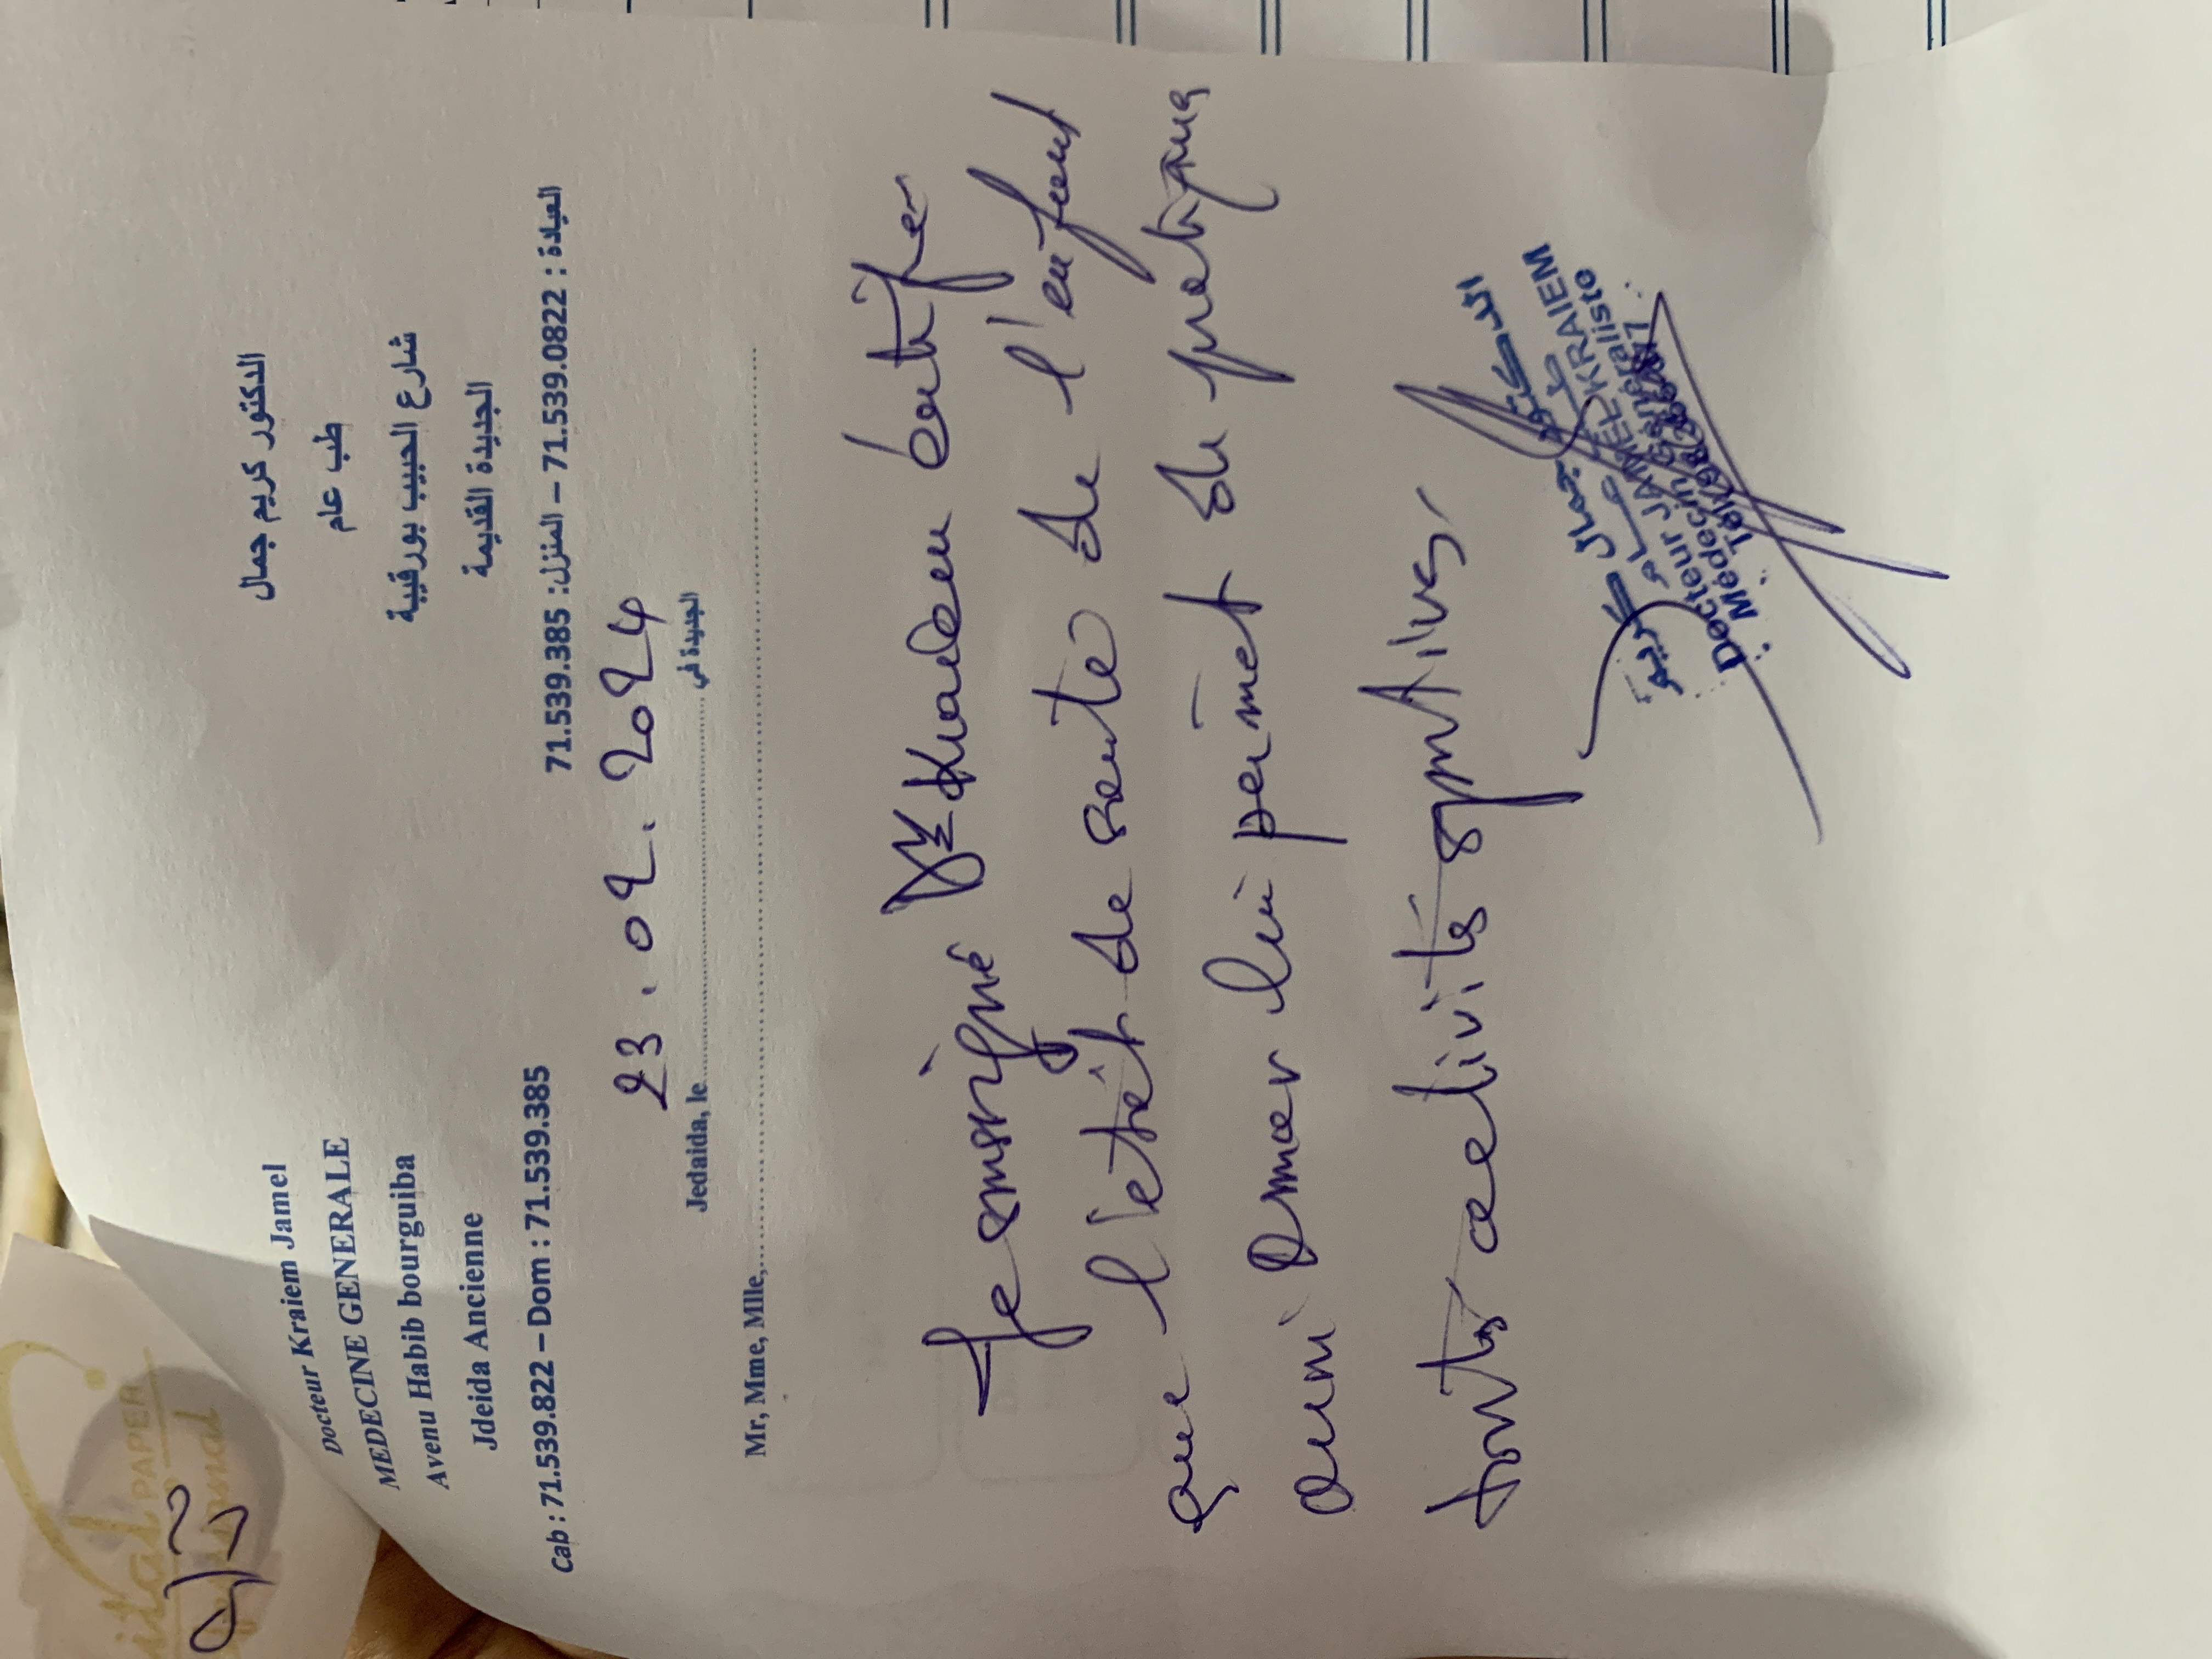 Docteur Kraiem Jamel
الدكتور كريم جمال
MEDECINE GENERALE
طب عام
Avenu Habib bourguiba
شارع الحبيب بورقيبة
Jdeida Ancienne
الجديدة القديمة
Cab : 71.539.822 – Dom : 71.539.385
العيادة : 71.539.0822 – المنزل: 71.539.385
23.02.2024
Jedaida, le
الجديدة في
Mr, Mme, Mlle,
Je soussigné certifier
que l'etat de sante de l'enfant
Omar lui permet de pratiquer
toutes activités sportives.
الدكتور جمال كريم
طب عام
Docteur JAMEL KRAIEM
Médecin Généraliste
Tél:
PAPER